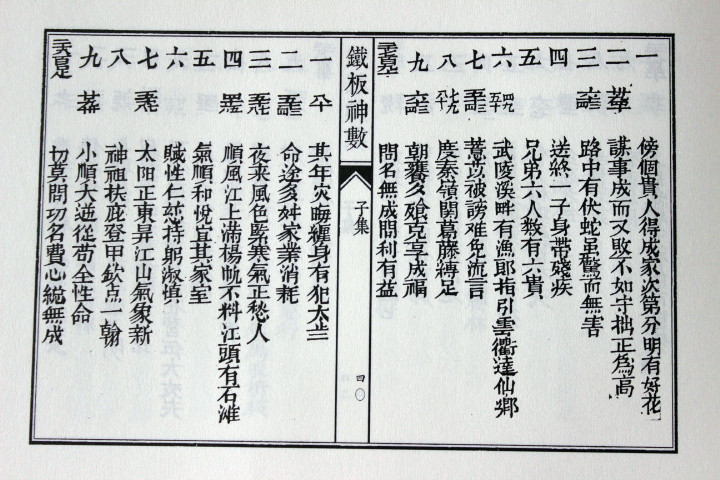 一 傍個貴人得成家次第分明有好花
二 謀事成而又敗不如守拙正為高
三 路中有伏蛇虽驚而無害
四 送終一子身帶殘疾
五 兄弟六人数有六貴
六 武陵溪畔有漁郎指引雲衢達仙鄉
七 薏苡被謗难免流言
八 度秦嶺関葛藤縛足
九 朝饔夕飧克享成福
問名無成問利有益
鐵板神數
子集
四〇
一 其年灾晦纏身有犯太歲
二 命途多舛家業消耗
三 夜来風色緊寒气正愁人
四 順風江上滿楊帆不料江頭有石滩
五 氣順和悦宜其家室
六 賦性仁慈持躬淑慎
七 太阳正東昇江山氣象新
八 神祖扶庇登甲欽点一翰
九 小順大逆従苟全性命
切莫問功名費心總無成